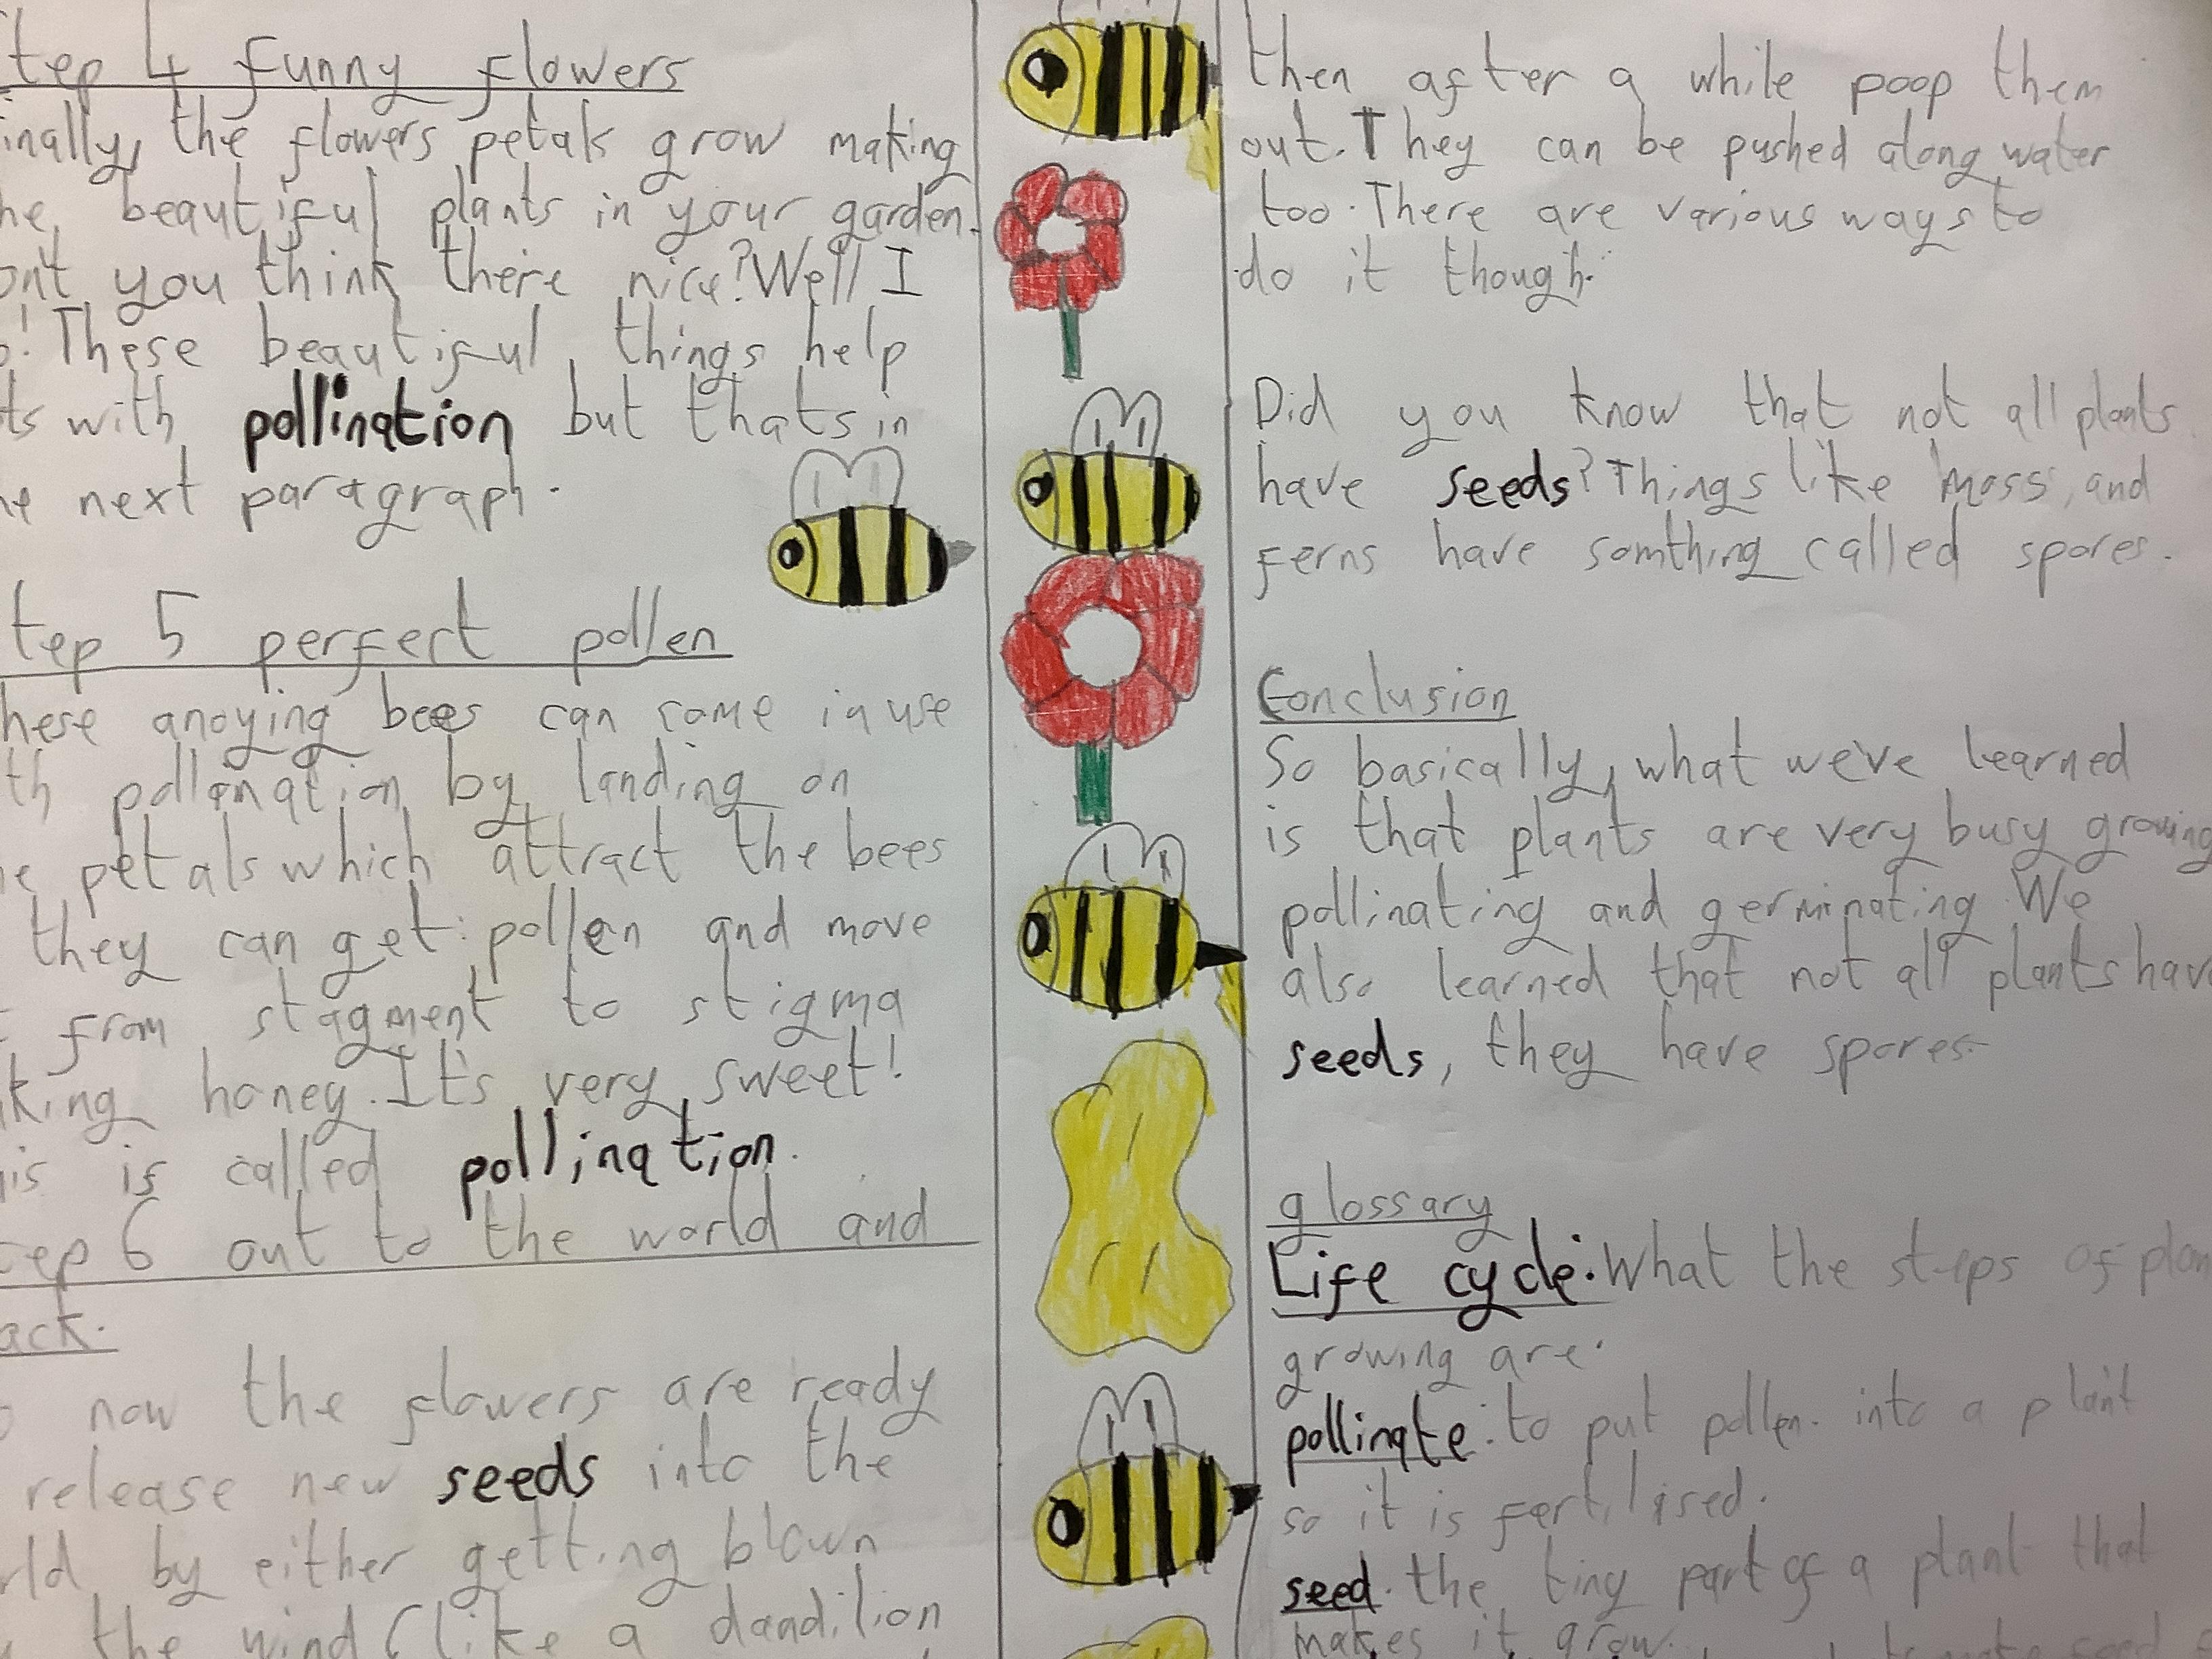 tep 4 funny flowers
inally, the flowers petals grow making
he beautiful plants in your garden.
ont you think there nice? Well I
o! These beautiful things help
ts with pollination but thats in
he next paragraph.
tep 5 perfect pollen
hese anoying bees can come in use
th pollenation by landing on
e petals which attract the bees
they can get pollen and move
t from stagment to stigma
king honey. It's very sweet!
is is called pollination.
tep 6 out to the world and
ack.
o now the flowers are ready
release new seeds into the
rld by either getting blown
the wind (like a dandilion
then after a while poop them
out. They can be pushed along water
too. There are various ways to
do it though.
Did you know that not all plants
have seeds? Things like moss, and
ferns have somthing called spores.
Conclusion
So basically, what we've learned
is that plants are very busy growing
pollinating and germinating. We
also learned that not all plants have
seeds, they have spores.
glossary
Life cycle: What the steps of plan
growing are.
pollinate: to put pollen into a plant
so it is fertilised.
seed. the tiny part of a plant that
makes it grow.